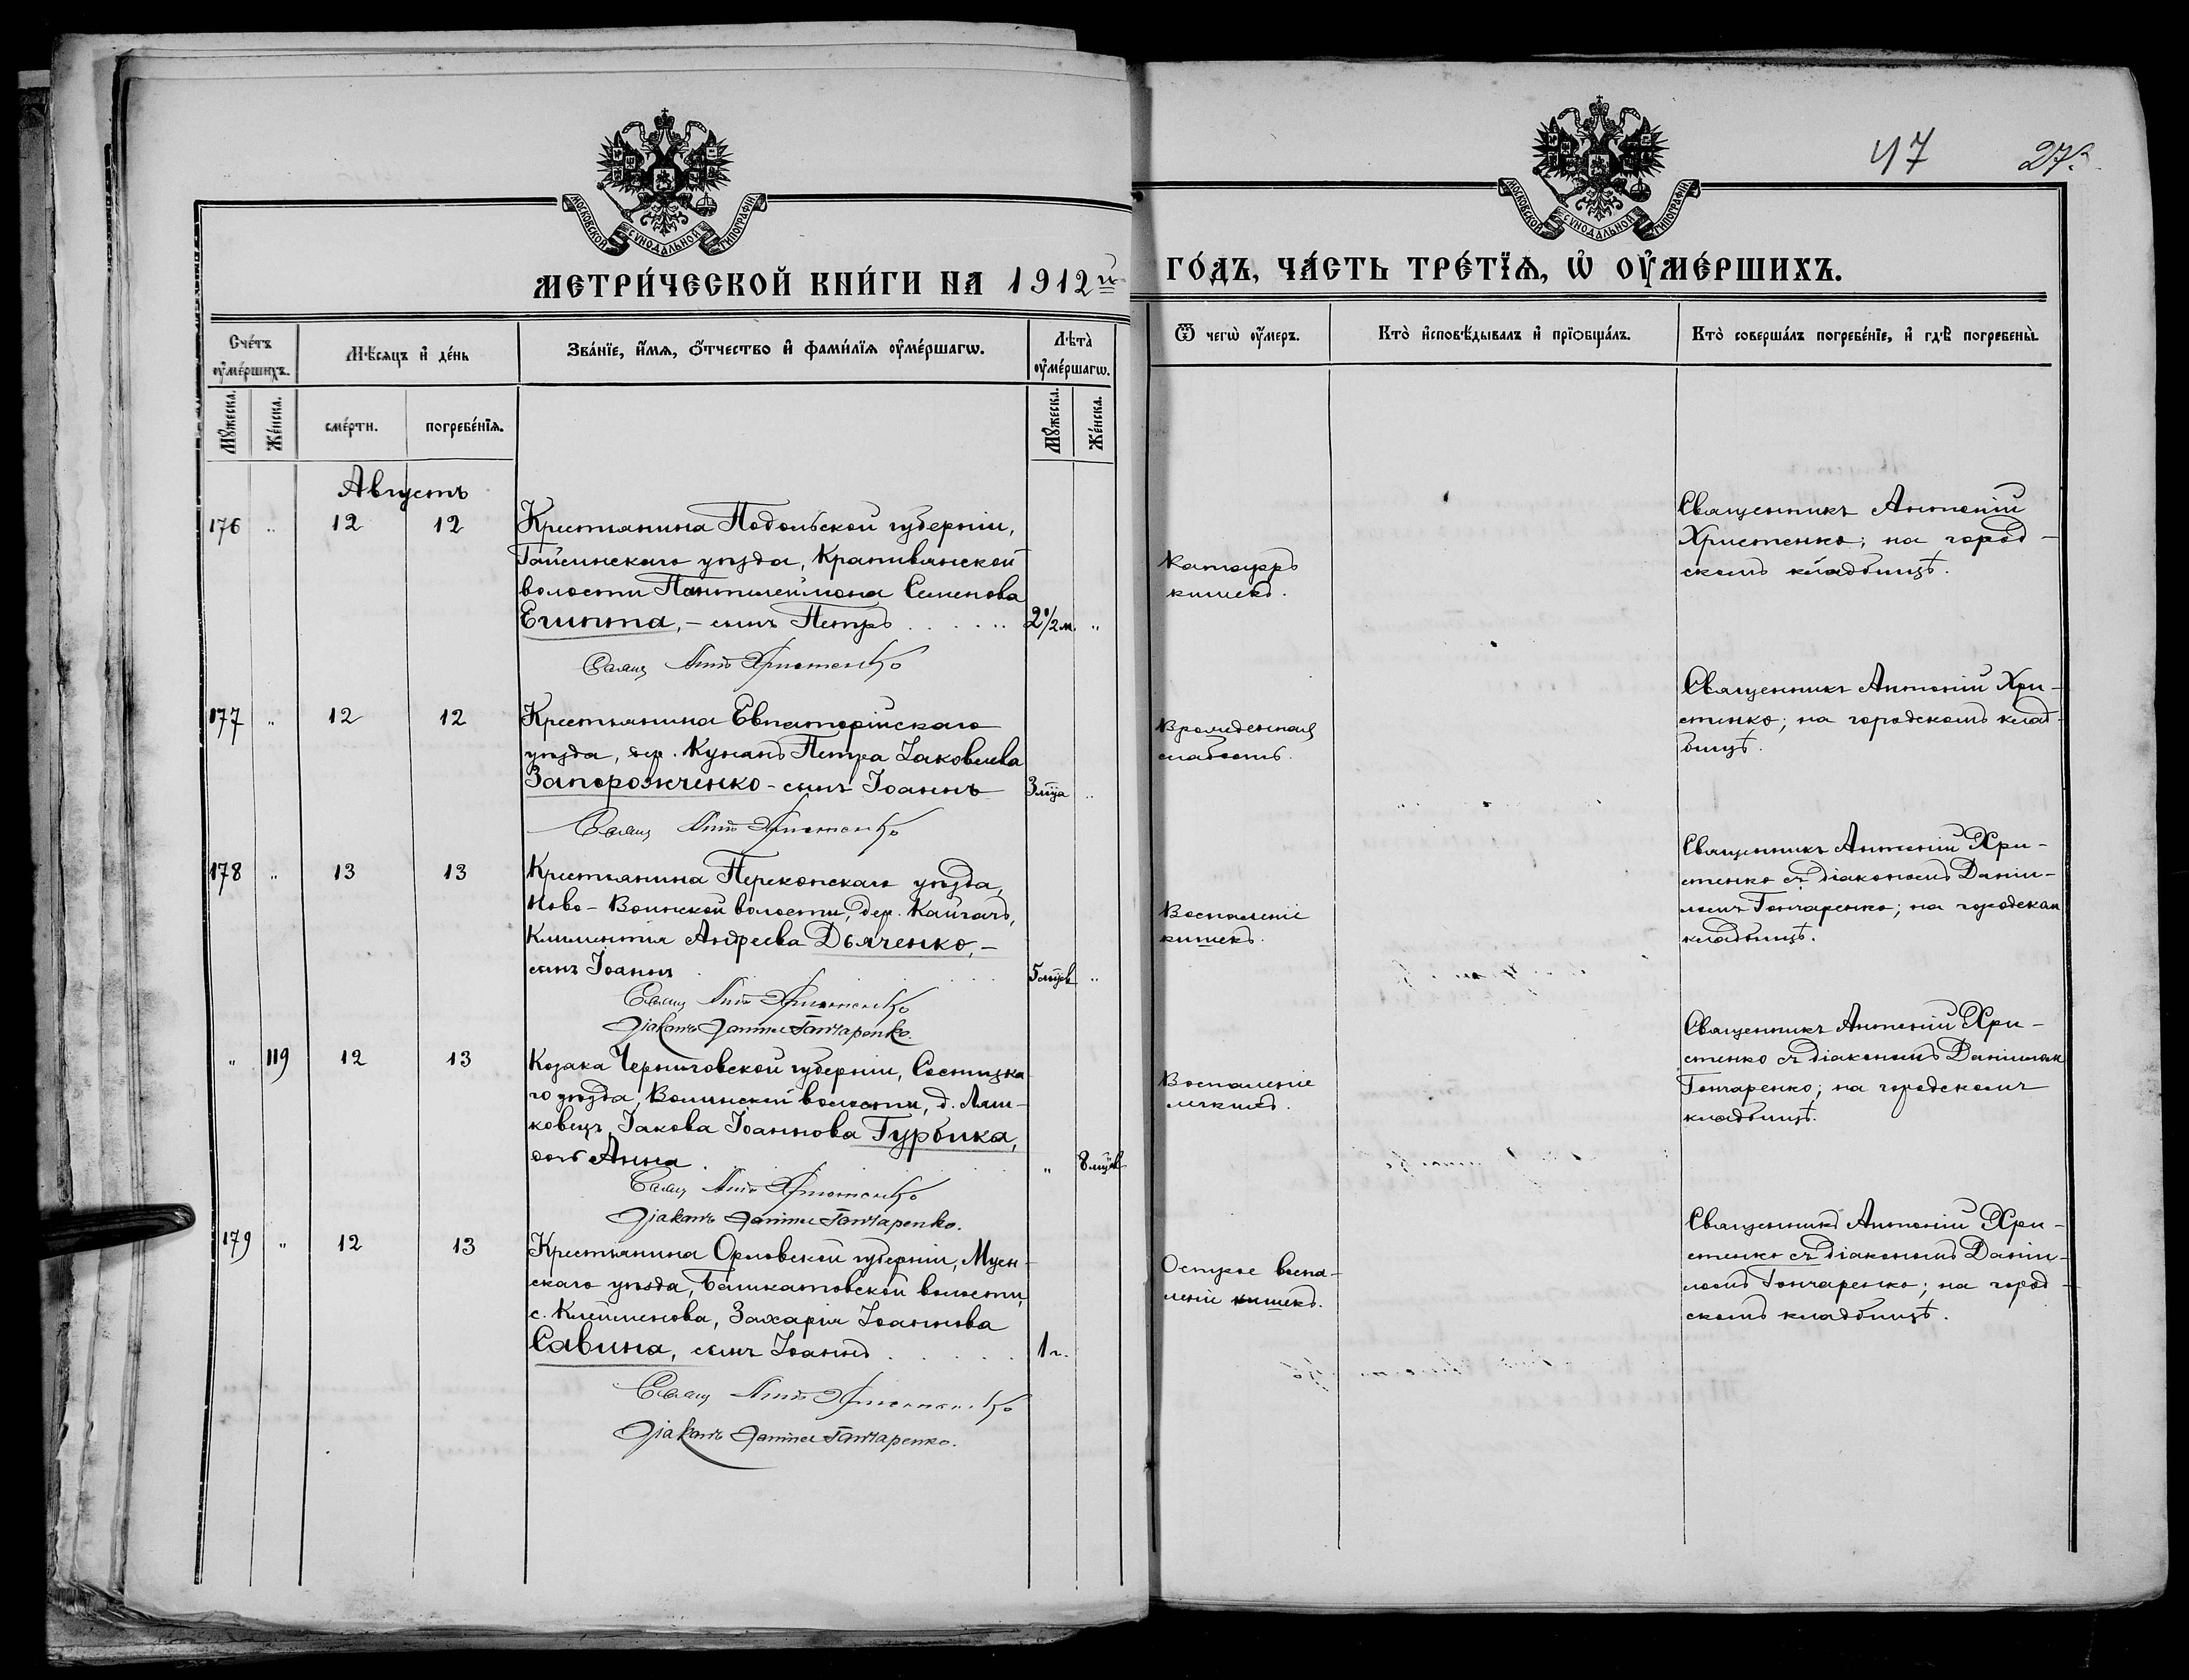 47 27.
МОСКОВСКОЙ СѴНОДАЛЬНОЙ ТИПОГРАФІИ
МОСКОВСКОЙ СѴНОДАЛЬНОЙ ТИПОГРАФІИ
МЕТРИ́ЧЕСКОЙ КНИ́ГИ НА 1912й ГО́ДЪ, ЧА́СТЬ ТРЕ́ТЇѦ, Ѡ҆ ОУ҆МЕ́РШИХЪ.
Сче́тъ оу҆ме́ршихъ.
Мѣ́сяцъ и҆ де́нь
Зва́нїе, и҆́мя, ѻ҆́тчество и҆ фами́лїя оу҆ме́ршагѡ.
Лѣта̀ оу҆ме́ршагѡ.
Ѿ чегѡ̀ оу҆́меръ.
Кто̀ и҆сповѣ́дывалъ и҆ прїѡбща́лъ.
Кто̀ соверша́лъ погребе́нїе, и҆ гдѣ̀ погребены̀.
Мꙋ́жеска.
Же́нска.
сме́рти.
погребе́нїя.
Мꙋ́жеска.
Же́нска.
Августъ
176 " 12 12
Крестьянина Подольской губерніи,
Гайсинскаго уѣзда, Крапивянской
волости Пантилеймона Семенова
Египта, – сынъ Петръ 2½ м. "
Свящ Ант Христенко
Катарръ
кишекъ.
Священникъ Антоній
Христенко; на город-
скомъ кладбищѣ.
177 " 12 12
Крестьянина Евпаторійскаго
уѣзда, дер. Кунанъ Петра Іаковлева
Запорожченко – сынъ Іоаннъ 3 мца "
Свящ Ант Христенко
Врожденная
слабость.
Священникъ Антоній Хри-
стенко; на городскомъ клад-
бищѣ.
178 " 13 13
Крестьянина Перекопскаго уѣзда,
Ново-Воинской волости, дер. Кайгачъ,
Климентія Андреева Дьяченко, –
сынъ Іоаннъ 5 мцев "
Свящ Ант Христенко
Діаконъ Даніил Гончаренко.
Воспаленіе
кишекъ.
Священникъ Антоній Хри-
стенко съ діакономъ Даніи-
ломъ Гончаренко; на городском
кладбищѣ.
" 119 12 13
Козака Черниговской губерніи, Сосницка
го уѣзда, Волинской волости, д. Ляш-
ковецъ, Іакова Іоаннова Гурбика,
дочь Анна " 8 мцев
Свящ Ант Христенко
Діаконъ Даніил Гончаренко.
Воспаленіе
легкихъ.
Священникъ Антоній Хри-
стенко съ діакономъ Даніилом
Гончаренко; на городскомъ
кладбищѣ.
179 " 12 13
Крестьянина Орловской губерніи, Мцен-
скаго уѣзда, Башкатовской волости,
с. Клейменова, Захарія Іоаннова
Савина, сынъ Іоаннъ 1 г.
Свящ Ант Христенко
Діаконъ Даніил Гончаренко.
Острое воспа-
леніе кишекъ.
Священникъ Антоній Хри-
стенко съ діакономъ Даніи-
ломъ Гончаренко; на город-
скомъ кладбищѣ.